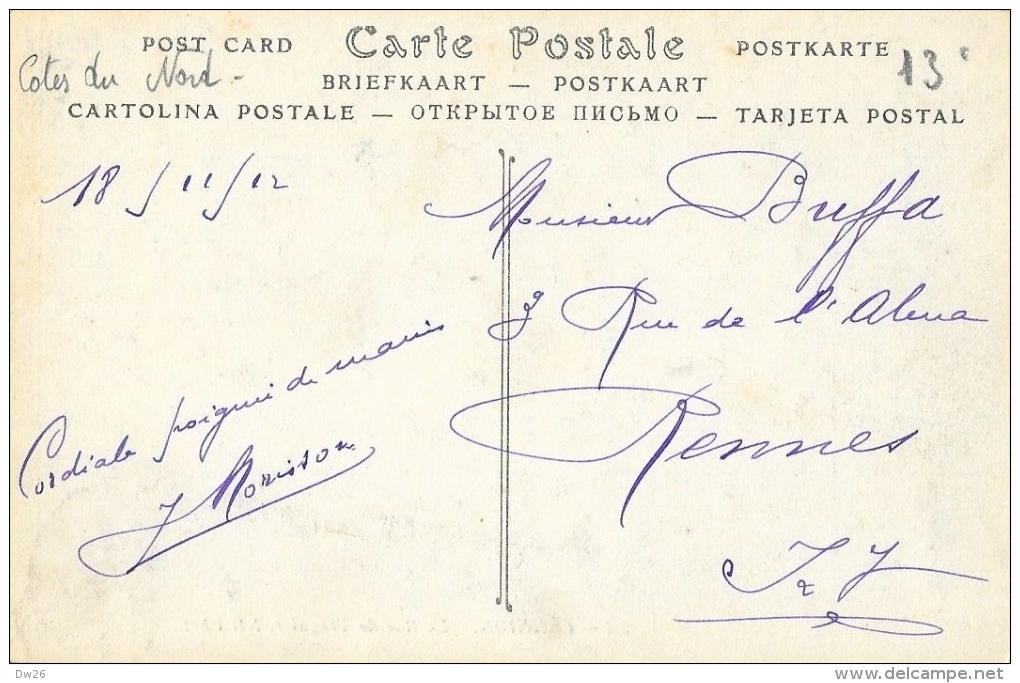 POST CARD Carte Postale POSTKARTE
Cotes du Nord - 13
BRIEFKAART — POSTKAART
CARTOLINA POSTALE — ОТКРЫТОЕ ПИСЬМО — TARJETA POSTAL
18 / 11 / 12
Monsieur Buffa
3 Rue de l'Alma
Rennes
I & V
Cordiale poignée de mains
J Morisson
Dw26
www.delcampe.net